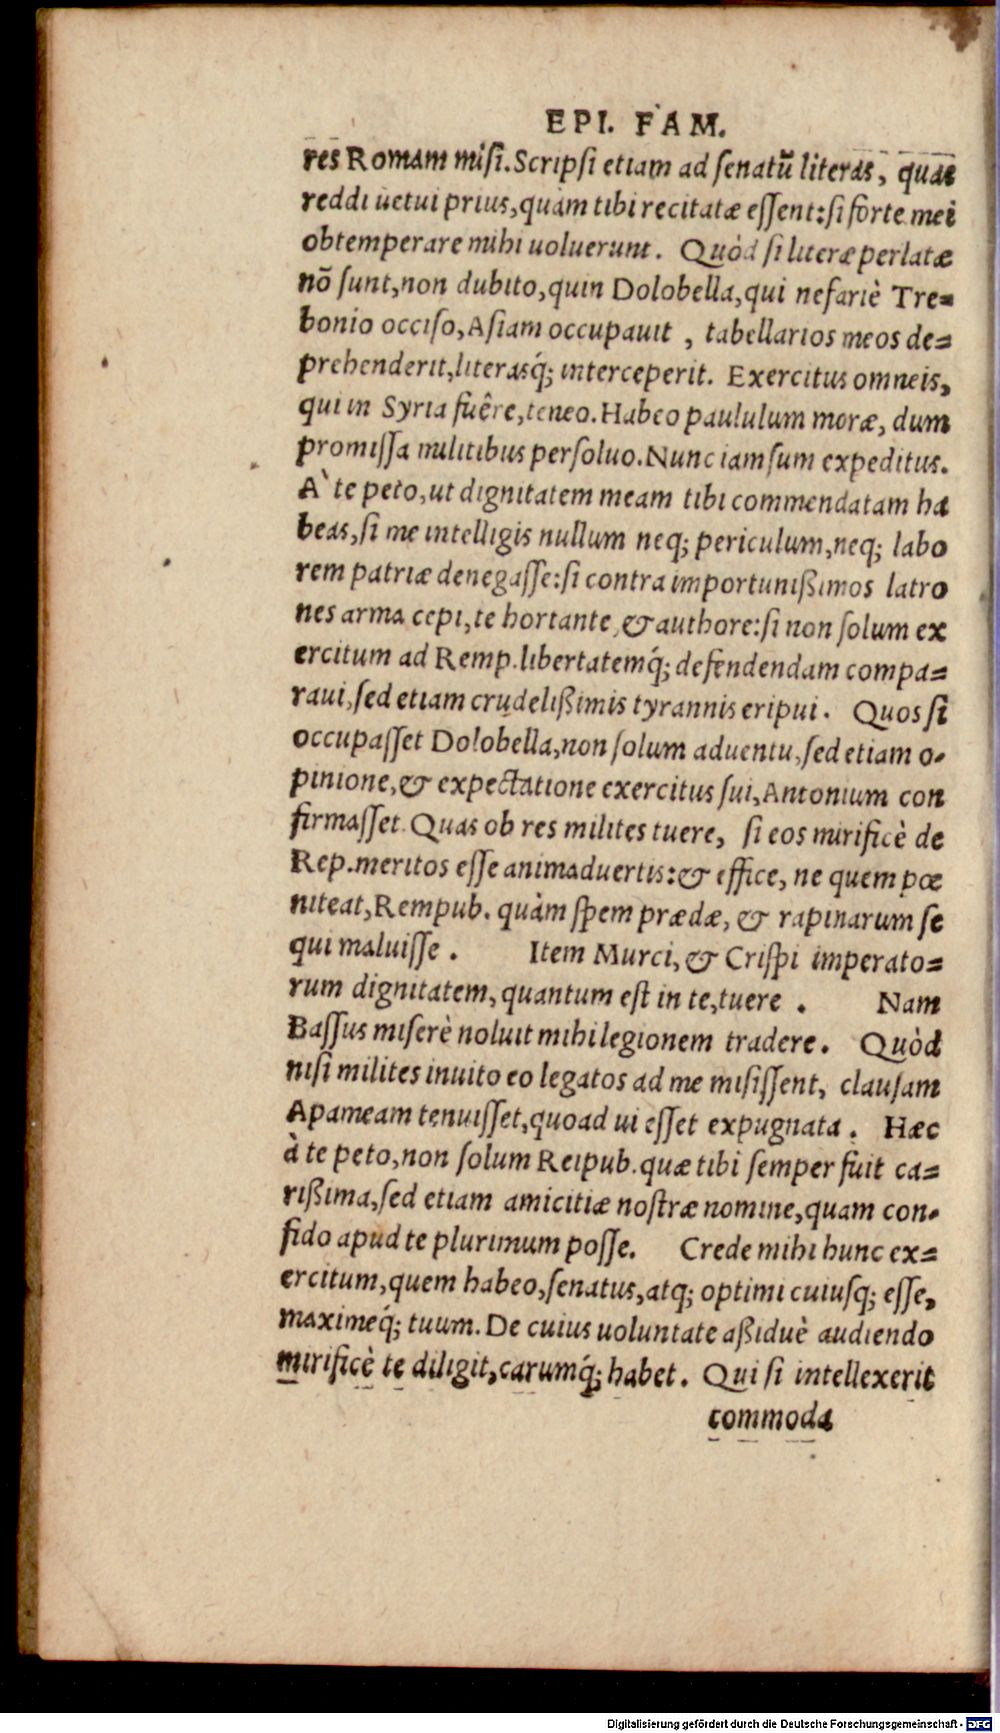 EPI. FAM.
res Romam misi. Scripsi etiam ad ſenatũ literas, quas
reddi uetui prius, quàm tibi recitatæ eſſent: ſi forte mei
obtemperare mihi uoluerunt. Quòd ſi literæ perlatæ
nõ ſunt, non dubito, quin Dolobella, qui nefariè Tre=
bonio occiſo, Aſiam occupauit, tabellarios meos de=
prehenderit, literasq́; interceperit. Exercitus omneis,
qui in Syria fuêre, teneo. Habeo paululum moræ, dum
promiſſa militibus perſoluo. Nunc iam ſum expeditus.
A` te peto, ut dignitatem meam tibi commendatam ha
beas, ſi me intelligis nullum neq; periculum, neq; labo
rem patriæ denegaſſe: ſi contra importunißimos latro
nes arma cepi, te hortante, & authore: ſi non ſolum ex
ercitum ad Remp. libertatemq́; defendendam compa=
raui, ſed etiam crudelißimis tyrannis eripui. Quos ſi
occupaſſet Dolobella, non ſolum aduentu, ſed etiam o-
pinione, & expectatione exercitus ſui, Antonium con
firmaſſet. Quas ob res milites tuere, ſi eos mirificè de
Rep. meritos eſſe animaduertis: & effice, ne quem pœ
niteat, Rempub. quàm ſpem prædæ, & rapinarum ſe
qui maluiſſe. Item Murci, & Criſpi imperato=
rum dignitatem, quantum eſt in te, tuere. Nam
Baſſus miſerè noluit mihi legionem tradere. Quòd
niſi milites inuito eo legatos ad me miſiſſent, clauſam
Apameam tenuiſſet, quoad ui eſſet expugnata. Hæc
à te peto, non ſolum Reipub. quæ tibi ſemper fuit ca=
rißima, ſed etiam amicitiæ noſtræ nomine, quam con-
fido apud te plurimum poſſe. Crede mihi hunc ex=
ercitum, quem habeo, ſenatus, atq; optimi cuiuſq; eſſe,
maximeq́; tuum. De cuius uoluntate aßiduè audiendo
mirificè te diligit, carumq́; habet. Qui ſi intellexerit
commoda
Digitalisierung gefördert durch die Deutsche Forschungsgemeinschaft - DFG